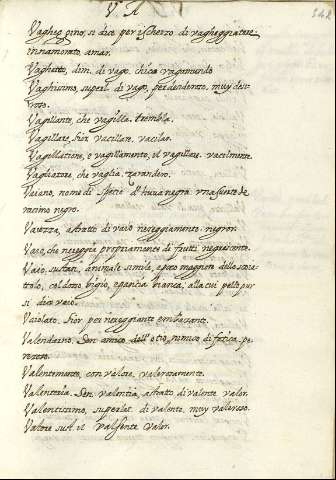 V. A
Vagheg gino, si dice per ischerzo di vagheggiatore.
innamorato. amar.
Vaghetto, dim. di vago. chico vagamundo
Vaghissimo, superl. di vago, per desideroso, muy dese
oso.
Vagillante, che vagilla. trembla.
Vagillare, fior. vacillare. vacilar.
Vagillatione, e vagillamento, il vagillare.
Vagliatore, che vaglia. zarandero.
Vaiano, nome di spetie d'huva negra. una suerte de
racimo negro.
Vaiezza, astratto di vaio nereggiamento. negror.
Vaio, che nereggia propriamente di frutti
Vaio, sustan. animale simile, e poco maggiore dello scoia
tolo, col dorso bigio, e pancia bianca, alla cui pelle pur
si dice vaio.
Vaiolato. fior. per nereggiante
Valendarno. Sen. amico dell'otio, nimico di fatica. pe
rezoso.
Valentemente, con valore. valerosamente.
Valenteria. Sen. valentia, astratto di valente. valor.
Valentissimo, superlat. di valente. muy valeroso.
Valore sust. il valsente. valor.